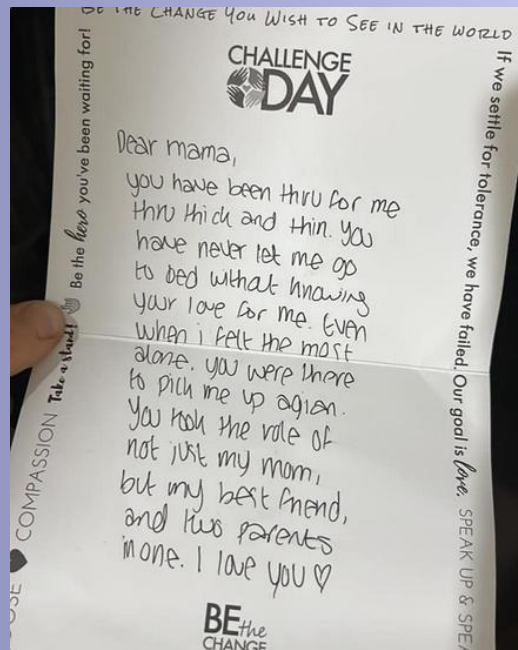 BE THE CHANGE YOU WISH TO SEE IN THE WORLD
CHALLENGE
DAY
Dear mama,
you have been thru for me
thru thick and thin. you
have never let me go
to bed withat knowing
your love for me. Even
when i felt the most
alone. you were there
to pick me up agian.
You took the role of
not just my mom,
but my best friend,
and two parents
in one. I love you ♡
BE the
CHANGE
COMPASSION Take a stand! Be the hero you've been waiting for!
If we settle for tolerance, we have failed. Our goal is love. SPEAK UP &